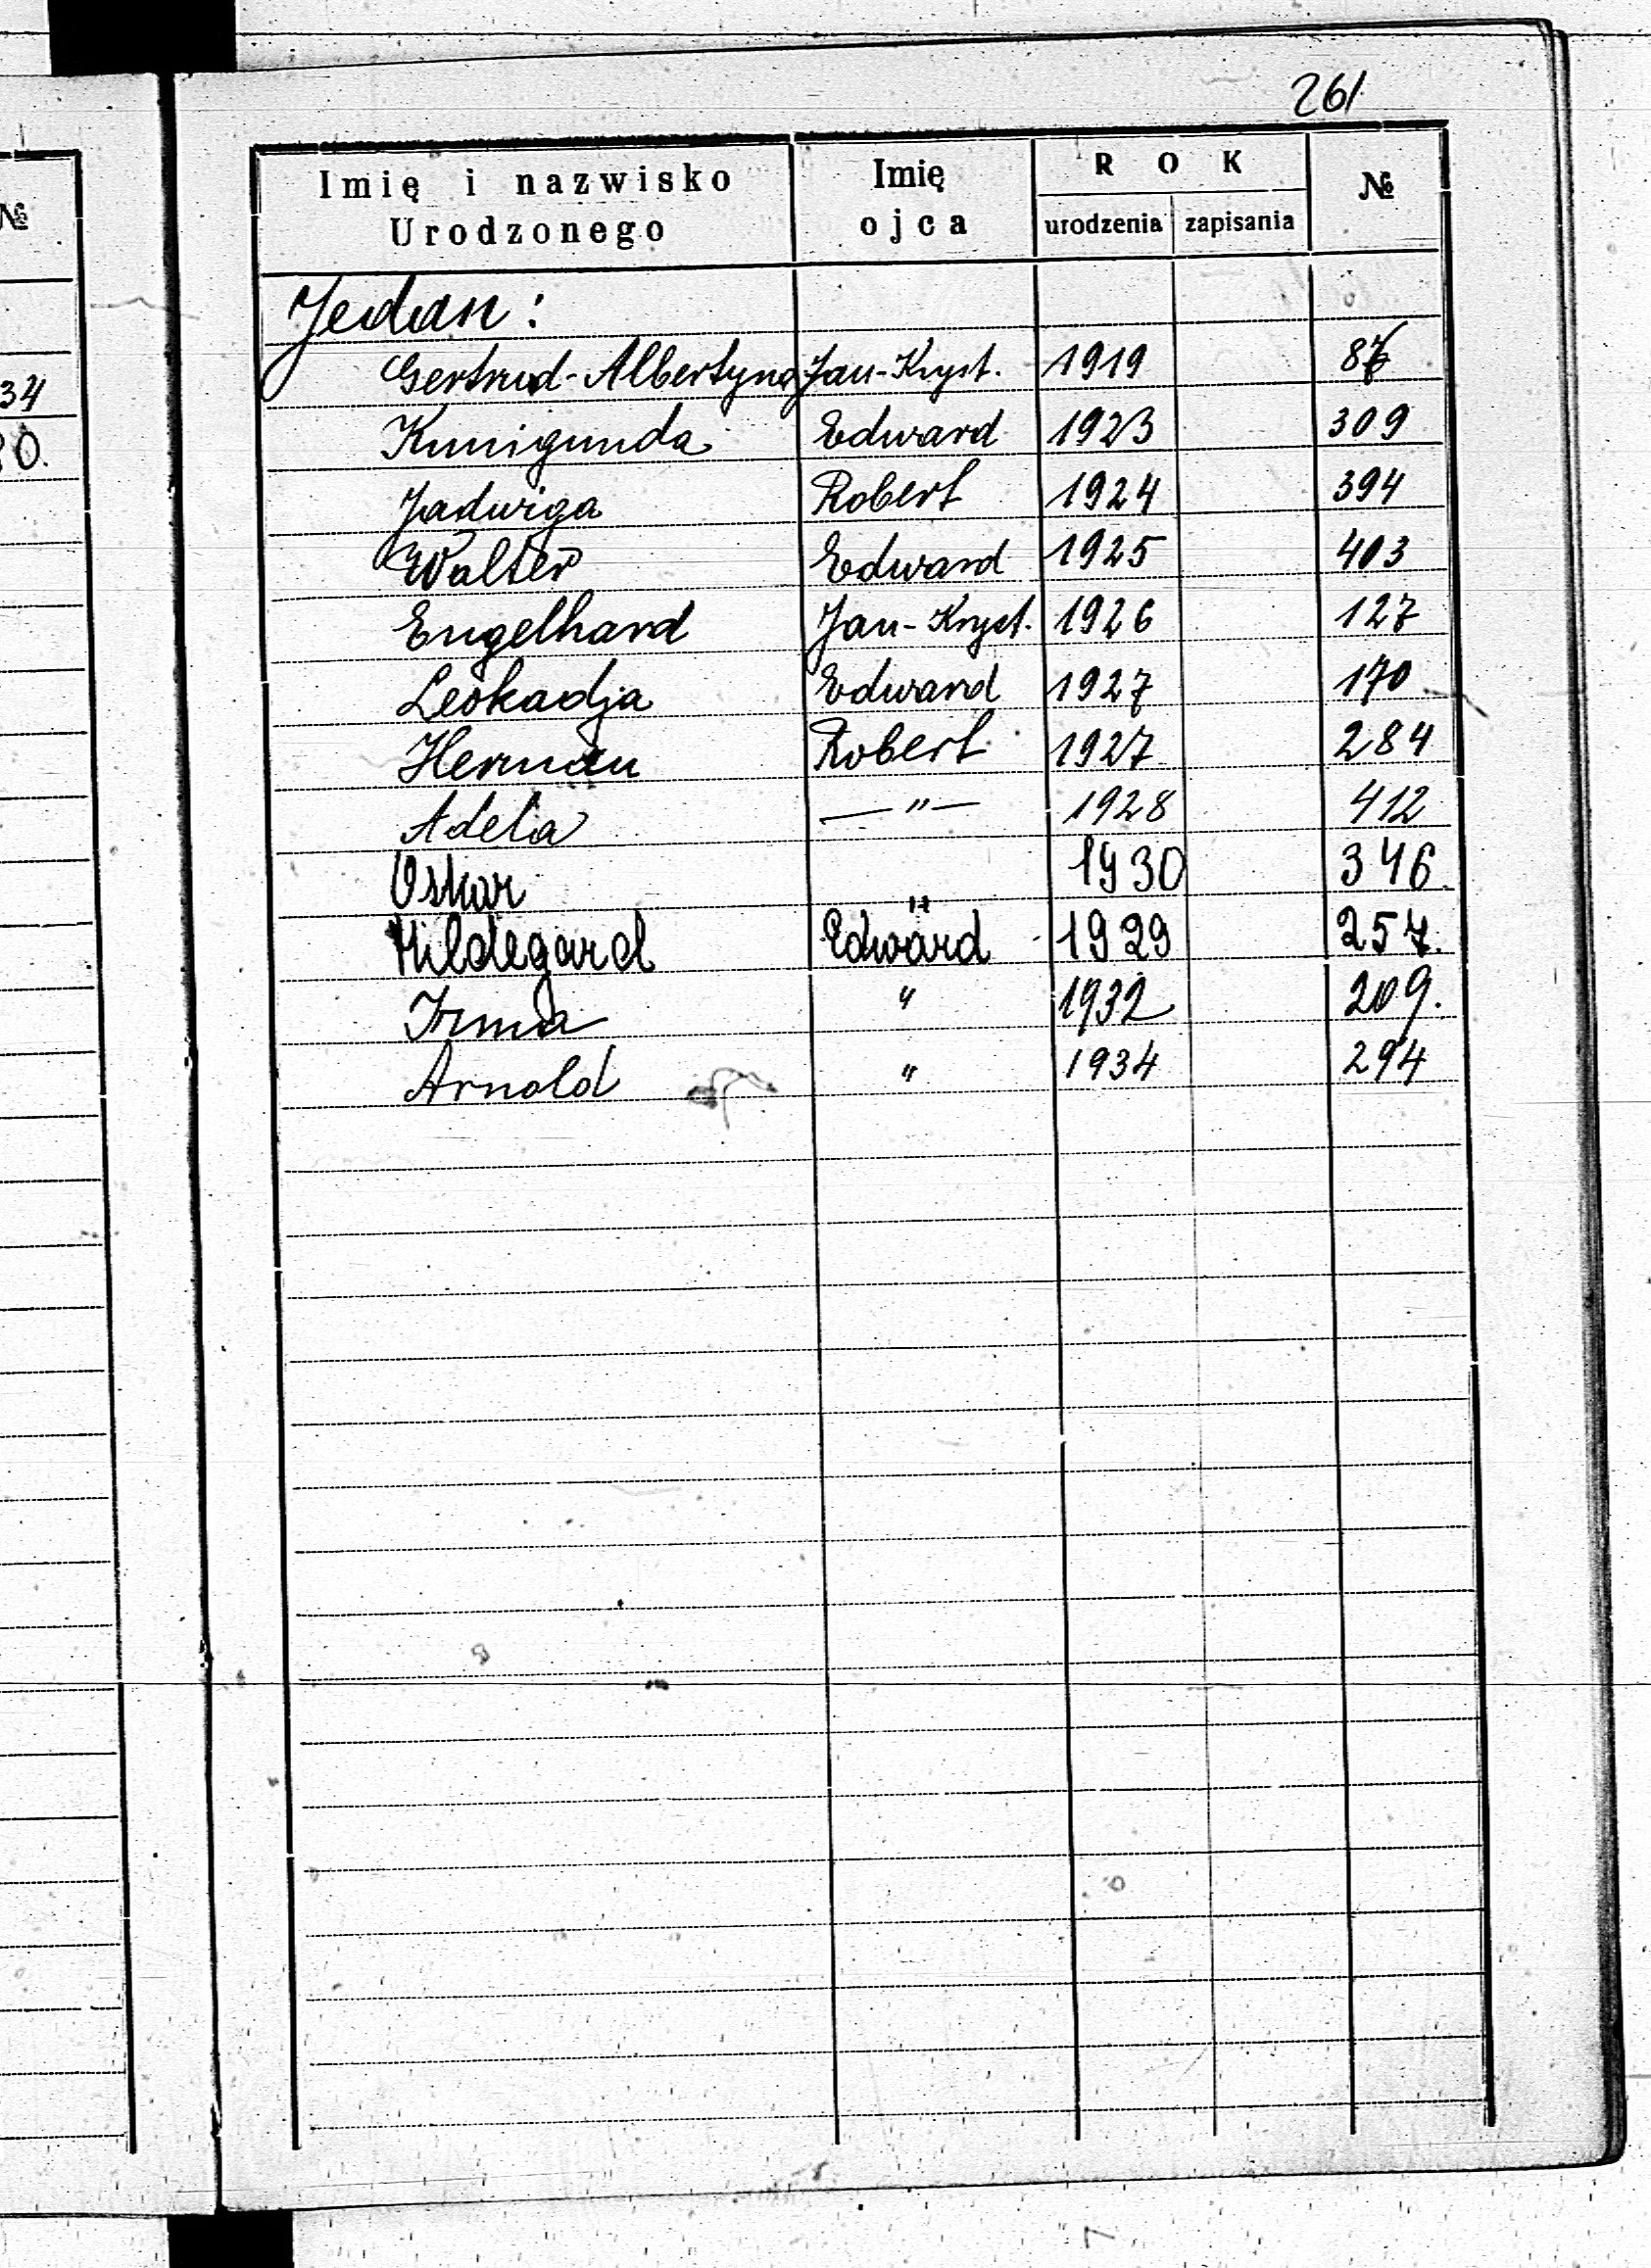 261
34
0.
№
Imię i nazwisko Urodzonego | Imię ojca | ROK urodzenia | zapisania | №
Jedan:
Gertrud-Albertyna Jan-Kryst. 1919
Kunigunda Edward 1923 309
Jadwiga Robert 1924 394
Walter Edward 1925 403
Engelhard Jan-Kryst. 1926 127
Leokadja Edward 1927 170
Herman Robert 1927 284
Adela —"— 1928 412
Oskar " 1930 346.
Hildegard Edward 1929 257.
Irma " 1932 209.
Arnold " 1934 294